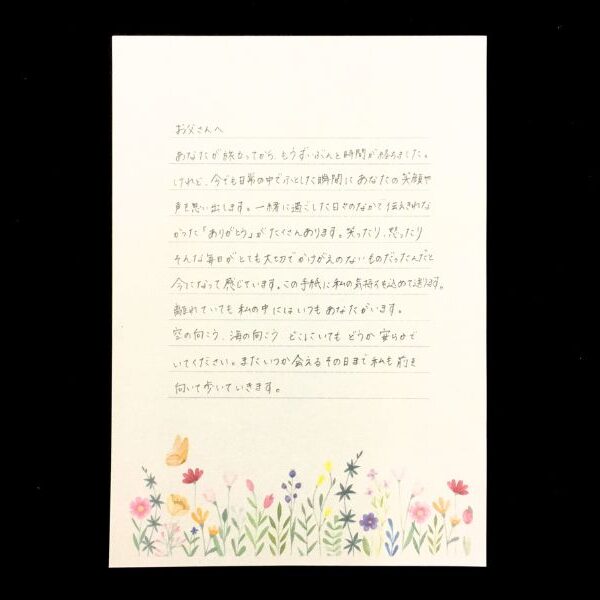 お父さんへ
あなたが旅立ってから、もうずいぶんと時間が経ちました。
けれど、今でも日常の中でふとした瞬間にあなたの笑顔や
声を思い出します。一緒に過ごした日々のなかで伝えきれな
かった「ありがとう」がたくさんあります。笑ったり、怒ったり
そんな毎日がとても大切でかけがえのないものだったんだと
今になって感じています。この手紙に私の気持ちも込めて送ります。
離れていても私の中にはいつもあなたがいます。
空の向こう、海の向こう どこにいても どうか 安らかで
いてください。またいつか会えるその日まで私も前を
向いて歩いていきます。